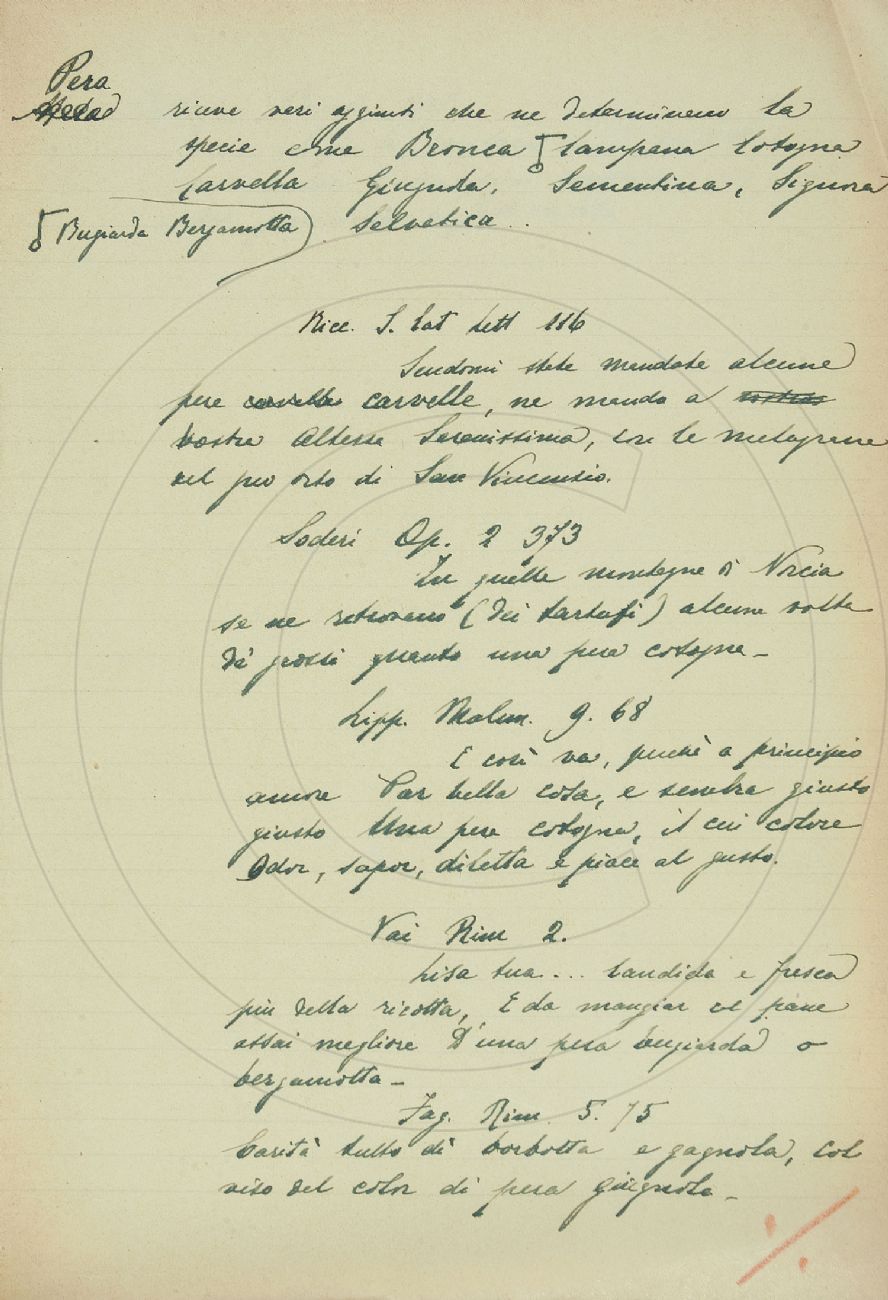 Pera
riceve veri aggiunti che ne determinano la
specie come Bronca Campana Cotogna
Carvella Giugnola, Sementina, Signora
Bugiarda Bergamotta Selvatica..
Ricc. S. Cat Lett 116
Sendomi state mandate alcune
pere carvelle, ne mando a
Vostra Altezza Serenissima, con le melagrane
del suo orto di San Vincenzio.
Soderi Op. 2 373
In quelle montagne di Norcia
se ne ritrovano (dei tartufi) alcune volte
de' grossi quanto una pera cotogna_
Lipp. Malm. 9. 68
E così va, perchè a principio
amore Par bella cosa, e sembra giusto
giusto Una pera cotogna, il cui colore
Odor, sapor, diletta e piace al gusto.
Vai Rim 2.
Lisa tua... Candida e fresca
più della ricotta, E da mangiar col pane
assai migliore D'una pera bugiarda o
bergamotta_
Fag. Rim. 5. 75
Carità tutto dì borbotta e gagnola, col
viso del color di pera giugnola_